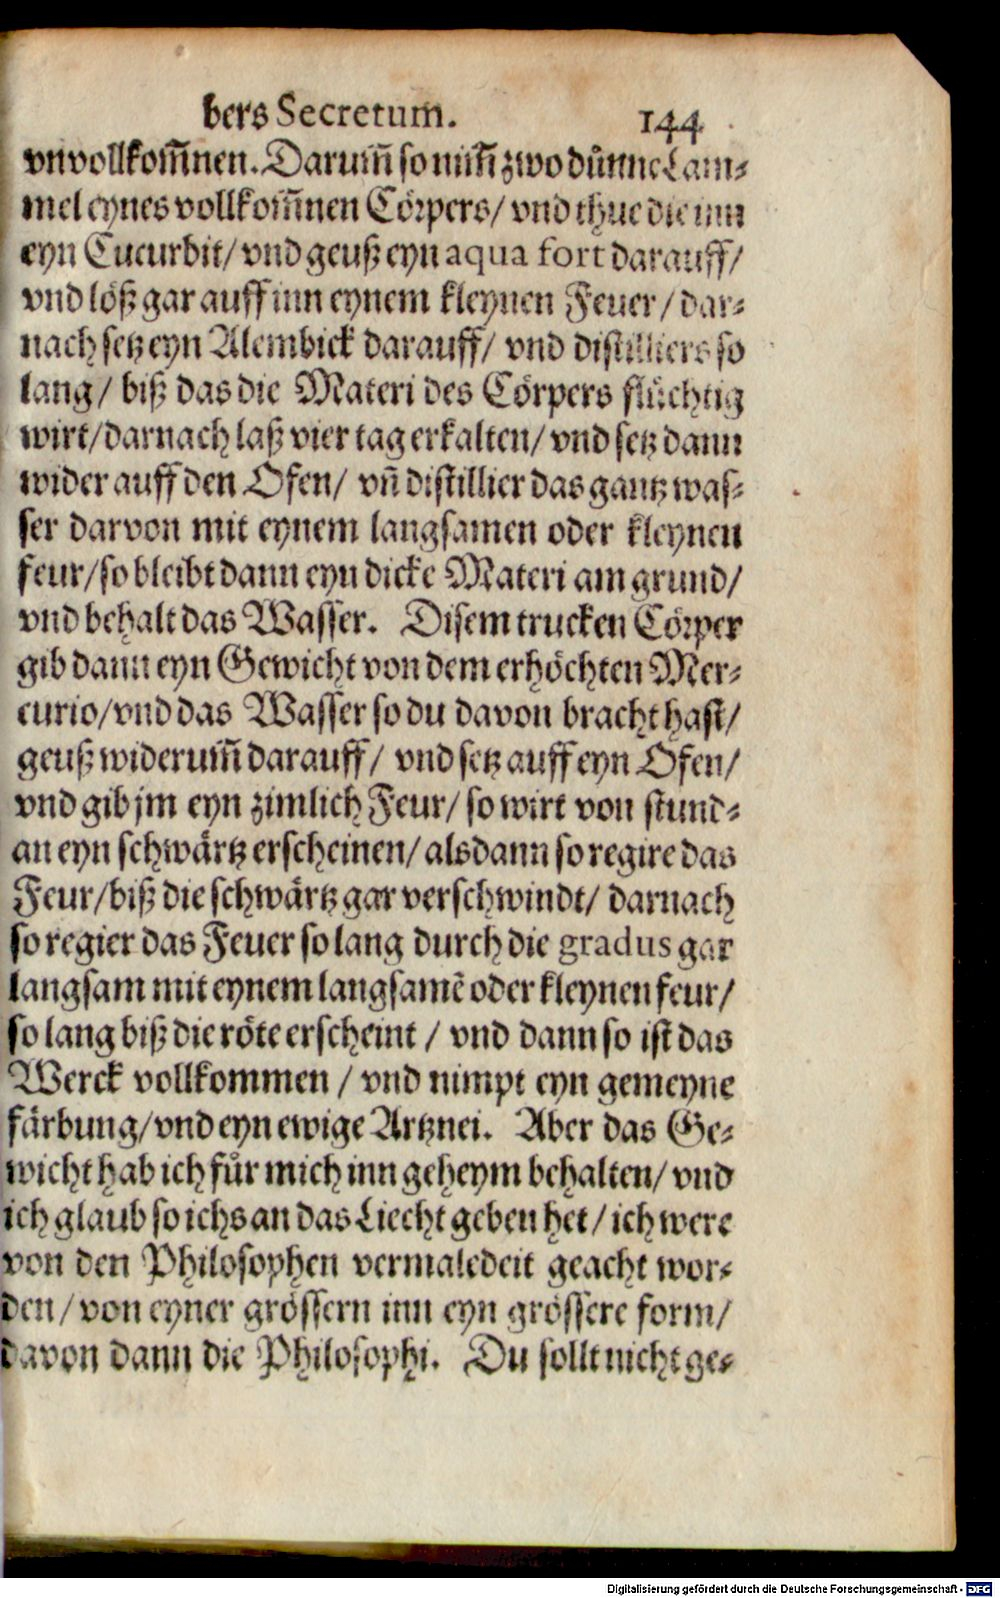 bers Secretum. 144
vnvollkom̃nen. Darum̃ so nim̃ zwo dünne Lam⸗
mel eynes vollkom̃nen Cörpers/ vnd thue die inn
eyn Cucurbit/ vnd geuß eyn aqua fort darauff/
vnd löß gar auff inn eynem kleynen Feuer/ dar⸗
nach setz eyn Alembick darauff/ vnd distilliers so
lang/ biß das die Materi des Cörpers flüchtig
wirt/ darnach laß vier tag erkalten/ vnd setz dann
wider auff den Ofen/ vñ distillier das gantz was⸗
ser darvon mit eynem langsamen oder kleynen
feur/ so bleibt dann eyn dicke Materi am grund/
vnd behalt das Wasser. Disem trucken Cörper
gib dann eyn Gewicht von dem erhöchten Mer⸗
curio/ vnd das Wasser so du davon bracht hast/
geuß widerum̃ darauff/ vnd setz auff eyn Ofen/
vnd gib jm eyn zimlich Feur/ so wirt von stund⸗
an eyn schwärtz erscheinen/ alsdann so regire das
Feur/ biß die schwärtz gar verschwindt/ darnach
so regier das Feuer so lang durch die gradus gar
langsam mit eynem langsamẽ oder kleynen feur/
so lang biß die röte erscheint/ vnd dann so ist das
Werck vollkommen/ vnd nimpt eyn gemeyne
färbung/ vnd eyn ewige Artznei. Aber das Ge⸗
wicht hab ich für mich inn geheym behalten/ vnd
ich glaub so ichs an das Liecht geben het/ ich were
von den Philosophen vermaledeit geacht wor⸗
den/ von eyner grössern inn eyn grössere form/
davon dann die Philosophi. Du sollt nicht ge⸗
Digitalisierung gefördert durch die Deutsche Forschungsgemeinschaft - DFG